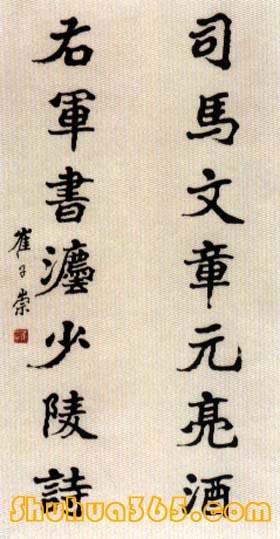 司馬文章元亮酒
右軍書灋少陵詩
崔子崇
Shuhua365.com